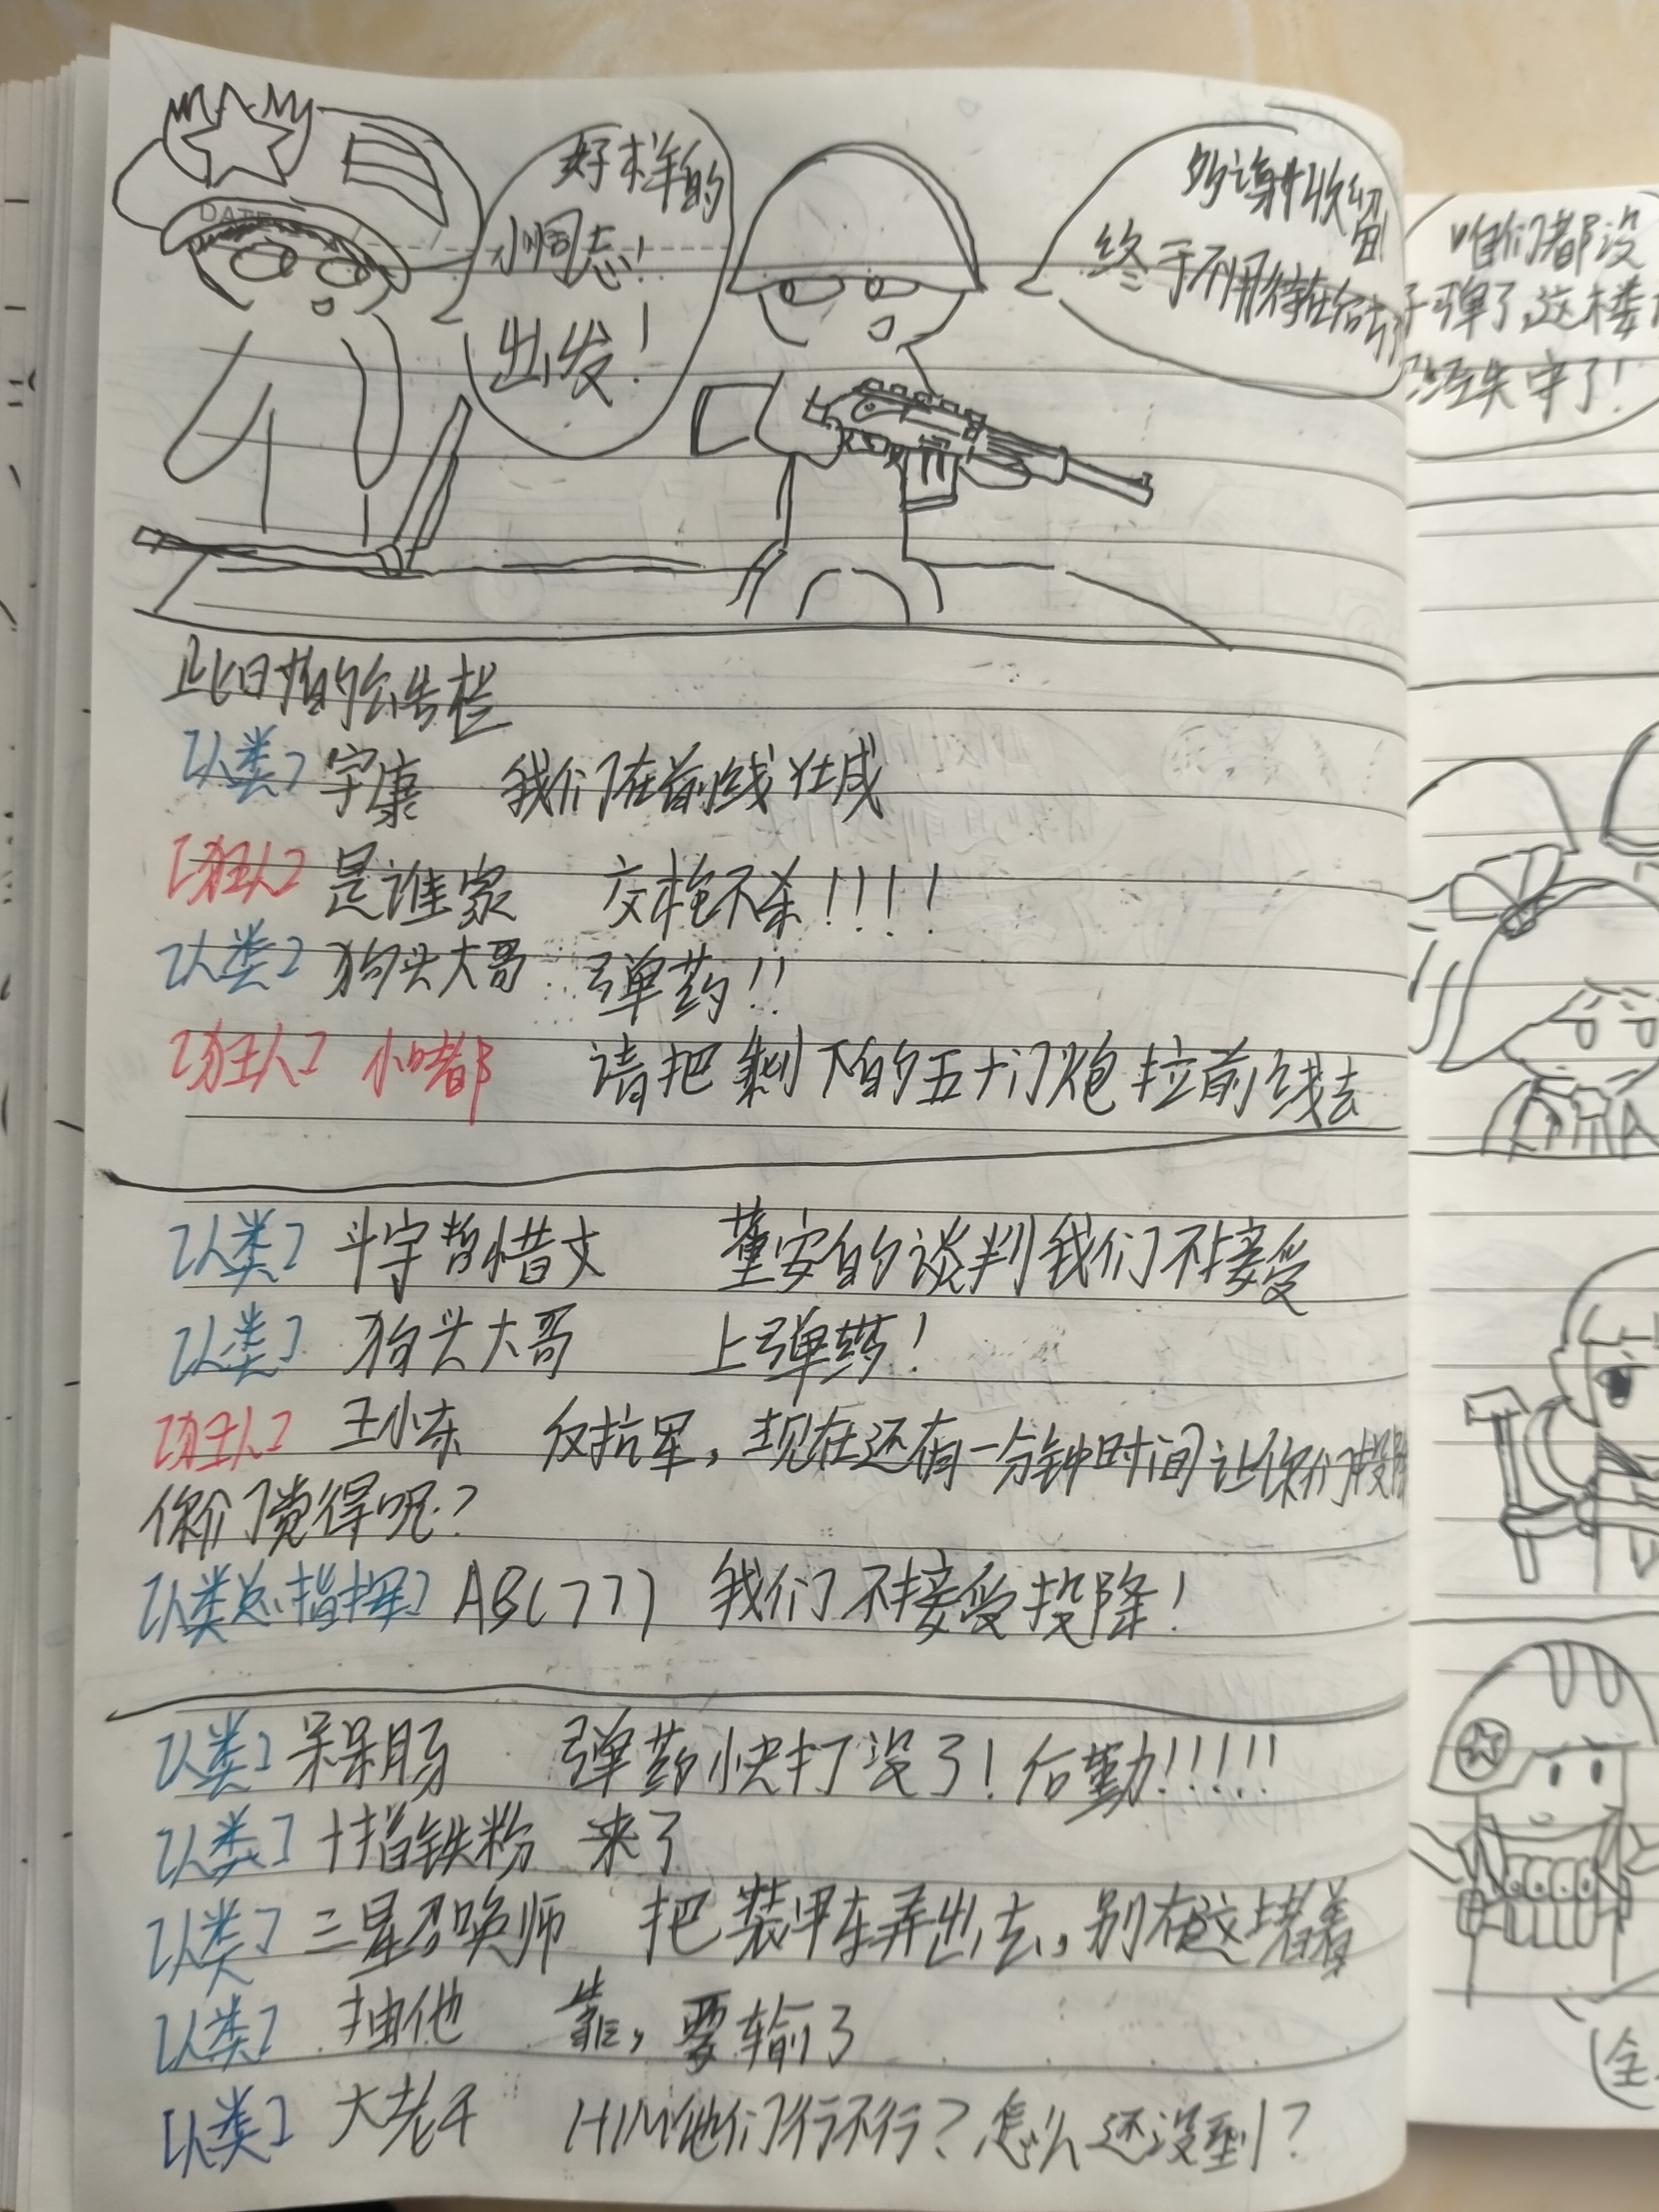 DATE
好样的
小同志!
出发!
多谢收留
终于不用待在
咱们都没
子弹了,这楼
已经失守了!
此时的公告栏
【人类】宇康 我们在前线
【狂人】是谁家 交枪不杀!!!!
【人类】狗头大哥 弹药!!
【狂人】小嘟 请把剩下的五十门炮拉前线去
【人类】斗宇哲惜文 董安的谈判我们不接受
【人类】狗头大哥 上弹药!
【狂人】王小东 反抗军,现在还有一分钟时间让你们投降
你们觉得呢?
【人类总指挥】ABC777 我们不接受投降!
【人类】呆呆 弹药快打没了!后勤!!!!!
【人类】十指铁粉 来了
【人类】三星召唤师 把装甲车弄出去,别在这堵着
【人类】抽他 靠,要输了
【人类】大老千 HIM他们行不行?怎么还没到?
全